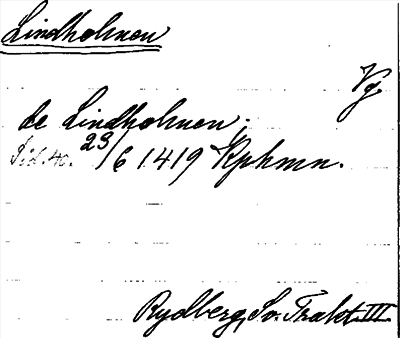 Lindholmen
Vg.
de Lindholmen.
Sid. 40. 23/6 1419 Kphmn.
Rydberg, Sv. Trakt. III.